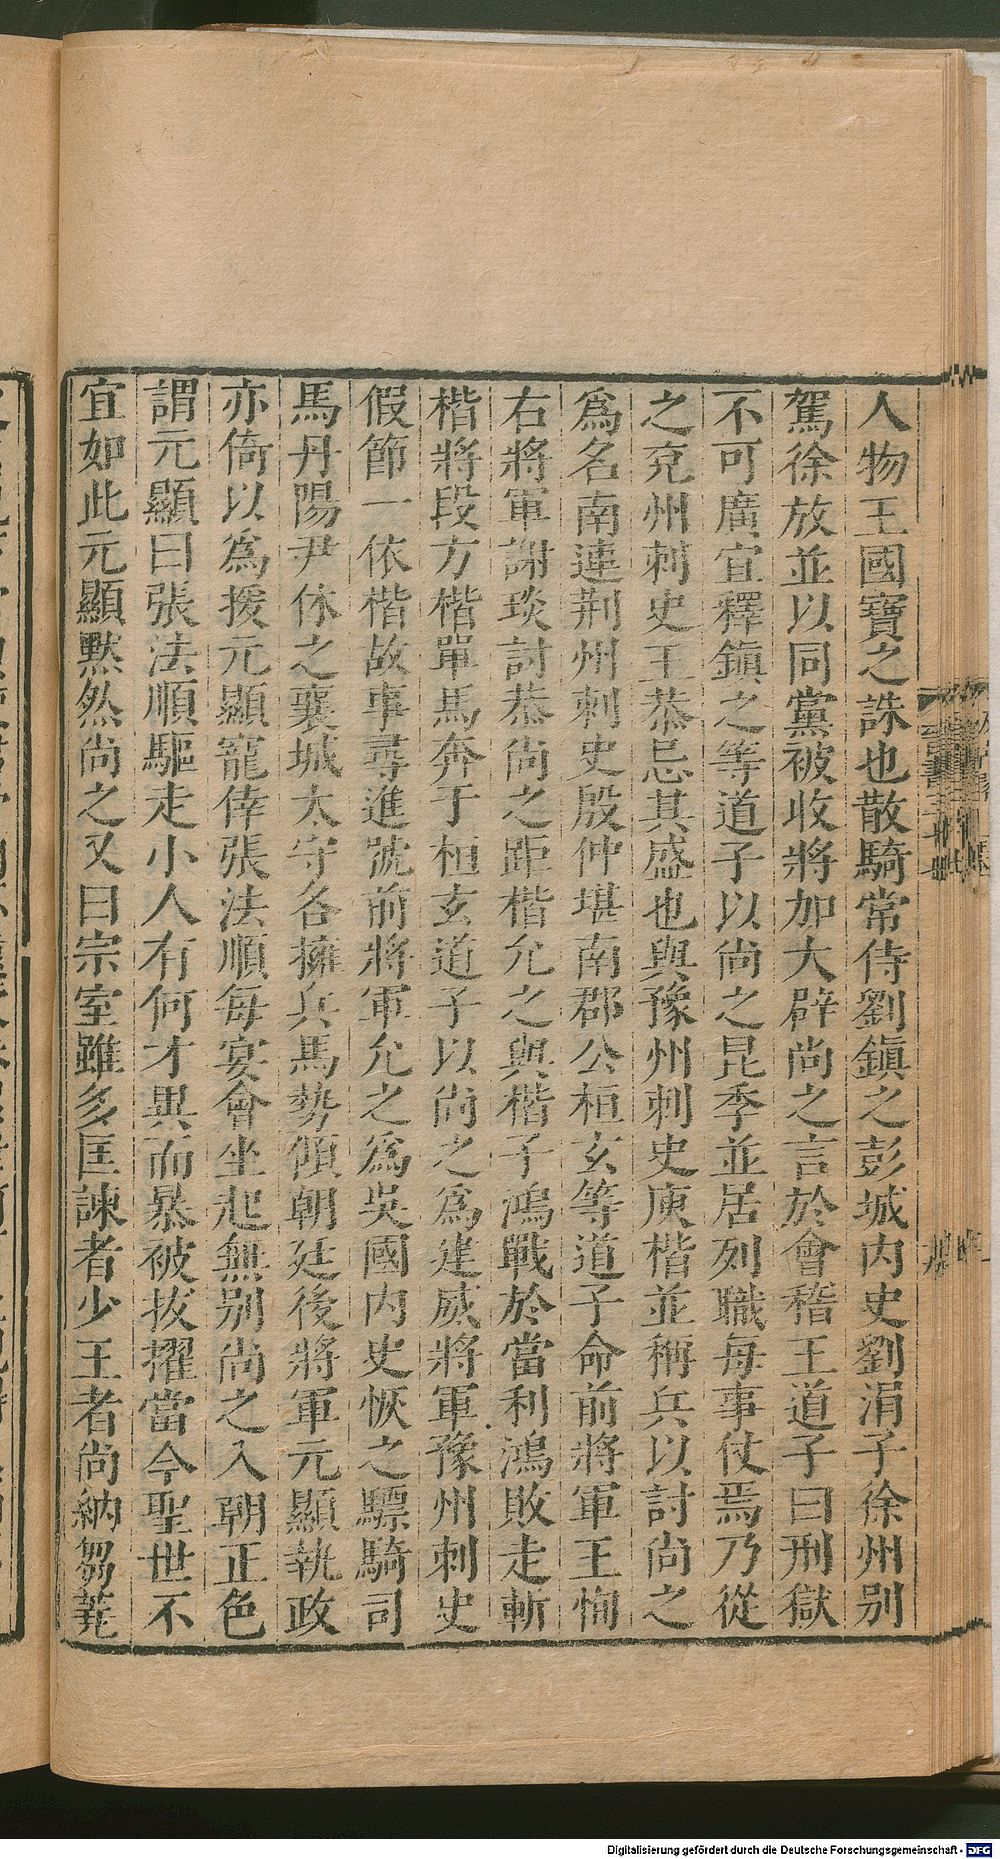 人物王國寶之誅也散騎常侍劉鎮之彭城内史劉涓子徐州别
駕徐放並以同黨被收將加大辟尚之言於會稽王道子曰刑獄
不可廣宜釋鎮之等道子以尚之昆季並居列職每事仗焉乃從
之兖州刺史王恭忌其盛也與豫州刺史庾楷並稱兵以討尚之
爲名南連荆州刺史殷仲堪南郡公桓玄等道子命前將軍王恂
右將軍謝琰討恭尚之距楷允之與楷子鴻戰於當利鴻敗走斬
楷將段方楷單馬奔于桓玄道子以尚之爲建威將軍豫州刺史
假節一依楷故事尋進號前將軍允之爲吳國内史恢之驃騎司
馬丹陽尹休之襄城太守各擁兵馬勢傾朝廷後將軍元顯執政
亦倚以爲援元顯寵倖張法順每宴會坐起無别尚之入朝正色
謂元顯曰張法順驅走小人有何才異而暴被拔擢當今聖世不
宜如此元顯默然尚之又曰宗室雖多匡諫者少王者尚納芻蕘
Digitalisierung gefördert durch die Deutsche Forschungsgemeinschaft - DFG